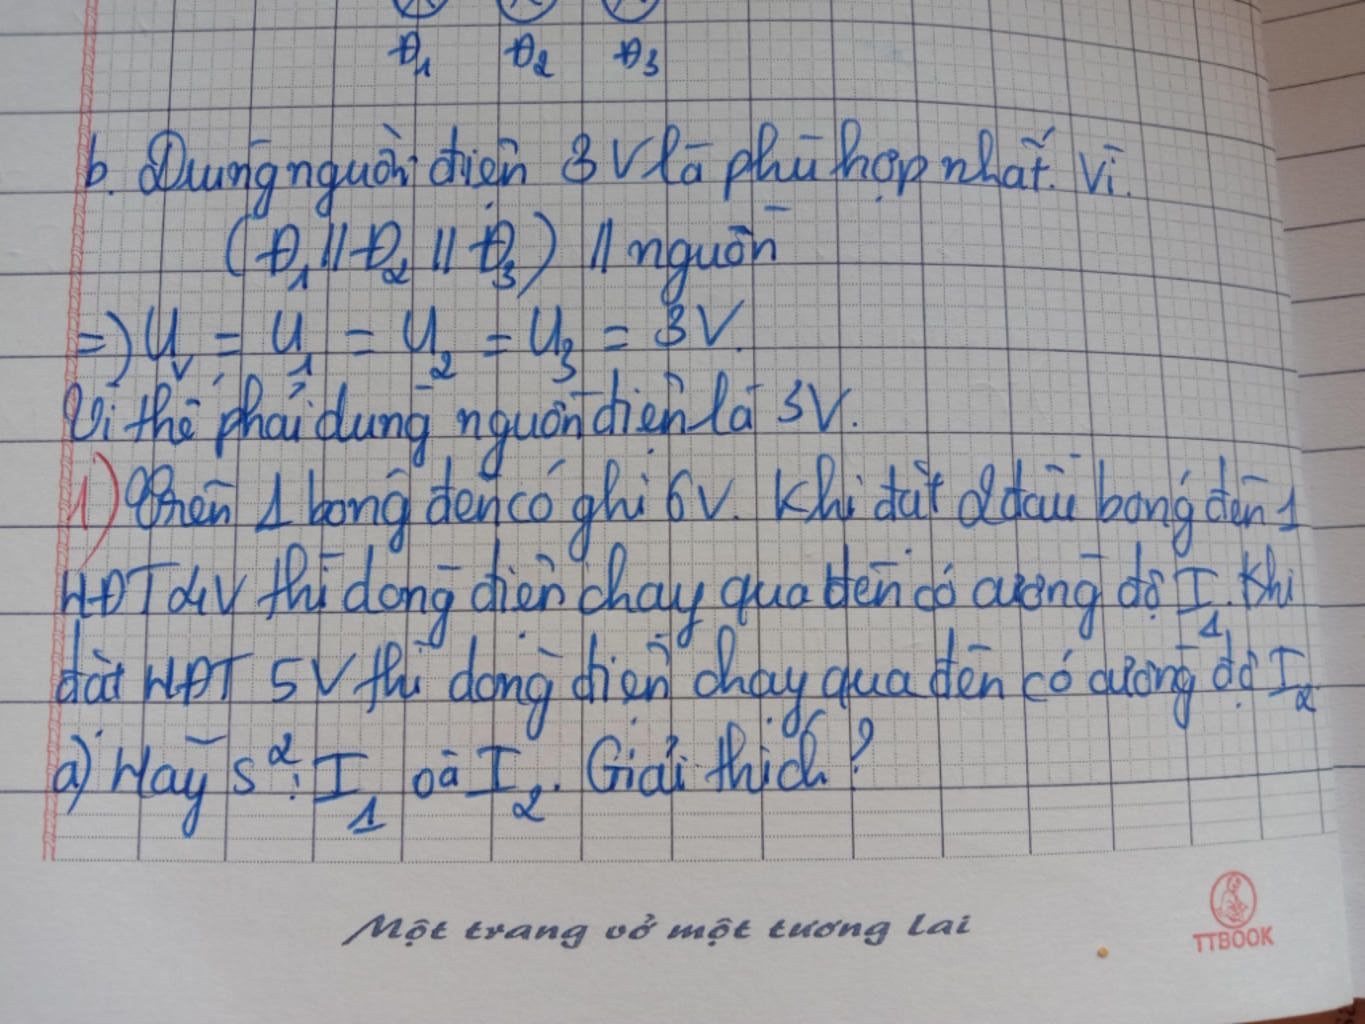 Đ1 Đ2 Đ3
b. Dùng nguồn điện 3V là phù hợp nhất. Vì.
(Đ1 // Đ2 // Đ3) // nguồn
=) Uv = U1 = U2 = U3 = 3V.
Vì thế phải dùng nguồn điện là 3V.
1) Trên 1 bóng đèn có ghi 6V. Khi đặt 2 đầu bóng đèn 1
HĐT 4V thì dòng điện chạy qua đèn có cường độ I1. Khi
đặt HĐT 5V thì dòng điện chạy qua đèn có cường độ I2
a) Hãy s²: I1 và I2. Giải thích?
Một trang vở một tương lai
TTBOOK